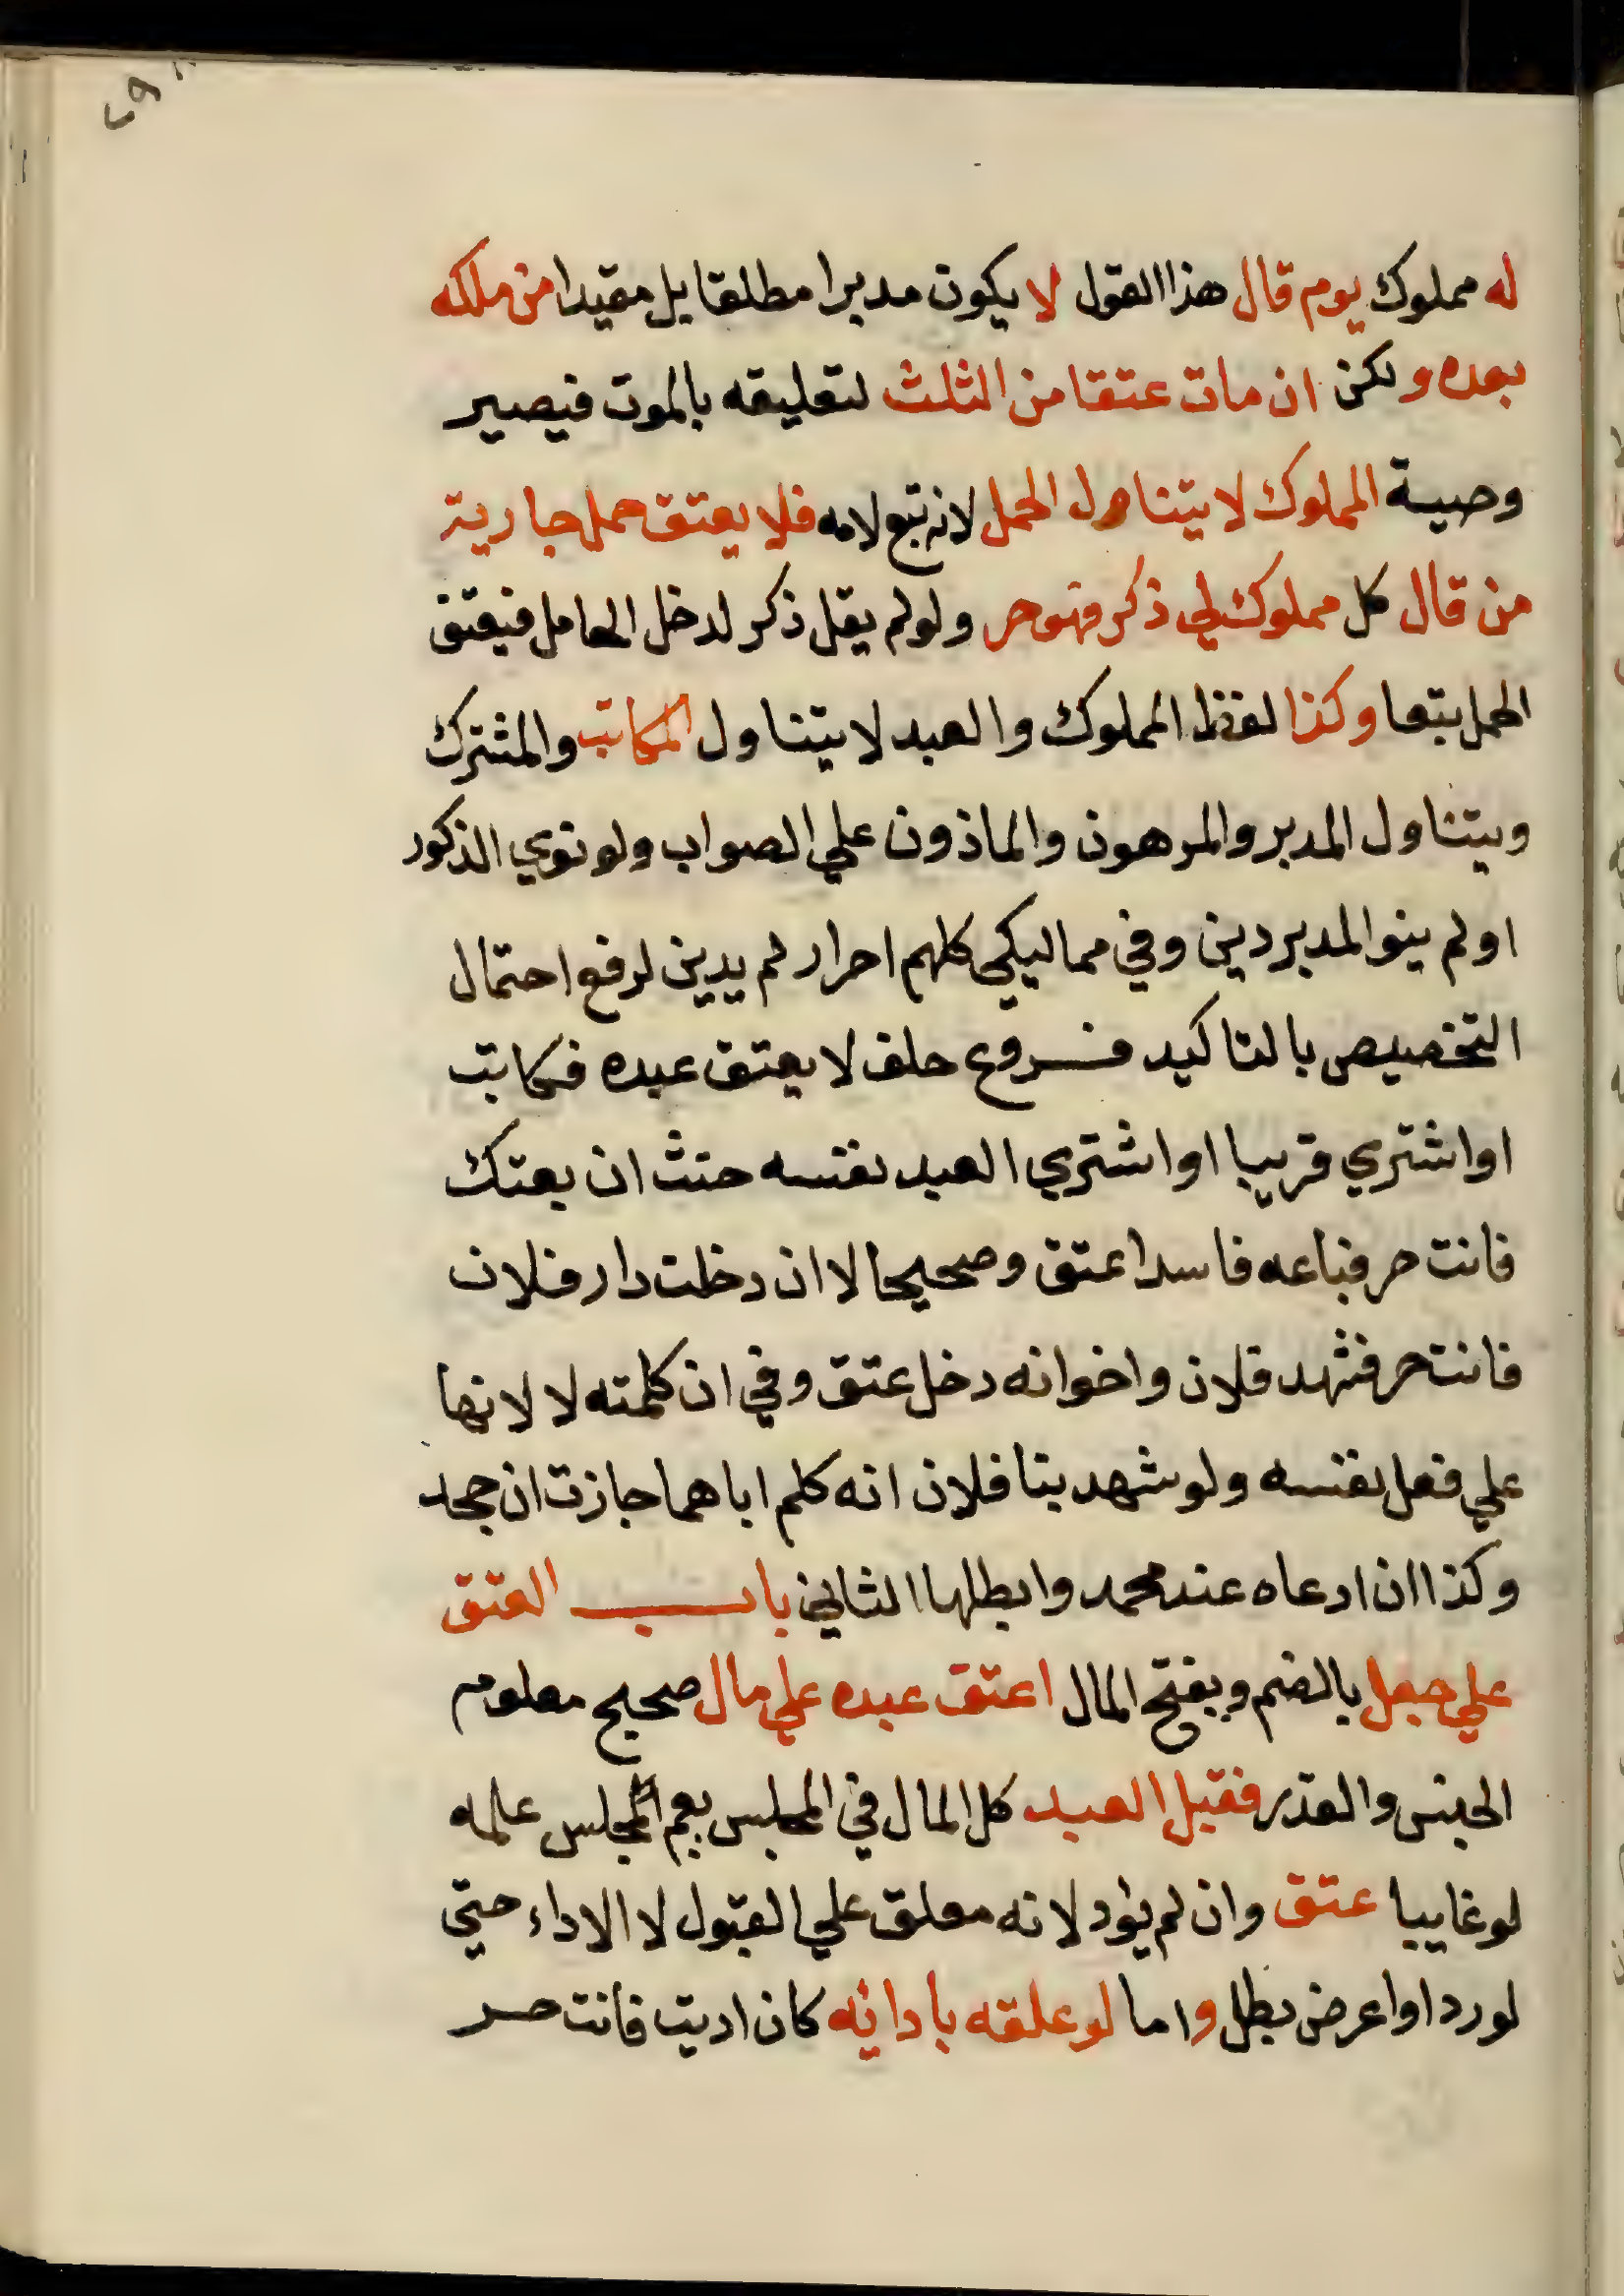 له مملوك يوم قال هذا القول لا يكون مدبرا مطلقا بل مقيدا من ملكه
بعده ولكن ان مات عتقا من الثلث لتعليقه بالموت فيصير
وصية المملوك لا يتناول الحمل لانه تبع لامه فلا يعتق حمل جارية
من قال كل مملوك لي ذكر فهو حر ولو لم يقل ذكر لدخل الحامل فيعتق
الحمل بتعا وكذا لفظ المملوك والعبد لا يتناول المكاتب والمشترك
ويتناول المدبر والمرهون والماذون علي الصواب ولو نوي الذكور
او لم ينو المدبر دين وفي مماليكي كلهم احرار لم يدين لرفع احتمال
التخصيص بالتاكيد فروع حلف لا يعتق عبده فكاتب
او اشتري قريبا او اشتري العبد نفسه حنث ان بعتك
فانت حر فباعه فاسدا عتق وصحيحا لا ان دخلت دار فلان
فانت حر فشهد فلان واخوانه دخل عتق وفي ان كلمته لا لانها
علي فعل نفسه ولو شهد بنا فلان انه كلم اباهما جازت ان جحد
وكذا ان ادعاه عند محمد وابطلها الثاني باب العتق
علي جعل بالضم وبفتح المال اعتق عبده علي مال صحيح معلوم
الجنس والقدر فقبل العبد كل المال في المجلس يعم المجلس علمه
لو غايبا عتق وان لم يؤد لانه معلق علي القبول لا الاداء حتي
لو رد او اعرض بطل واما لو علقه بادائه كان اديت فانت حر